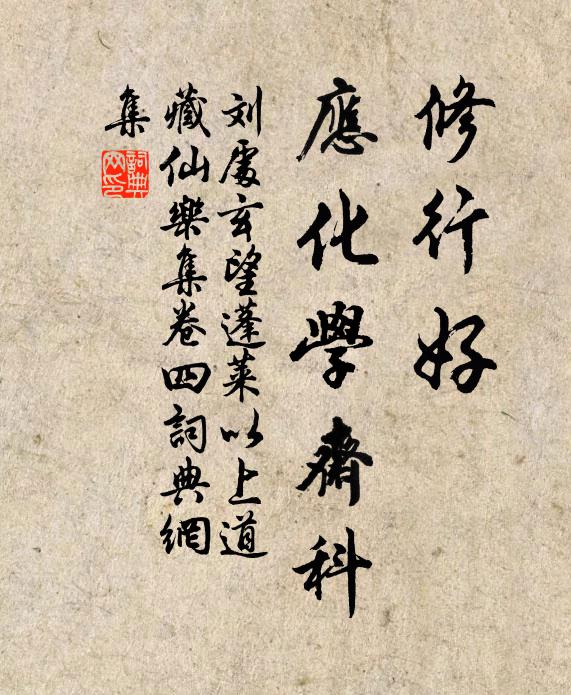 修行好
應化學齋科
刘處玄望蓬莱以上道
藏仙樂集卷四詞典網
集
詞典
网印